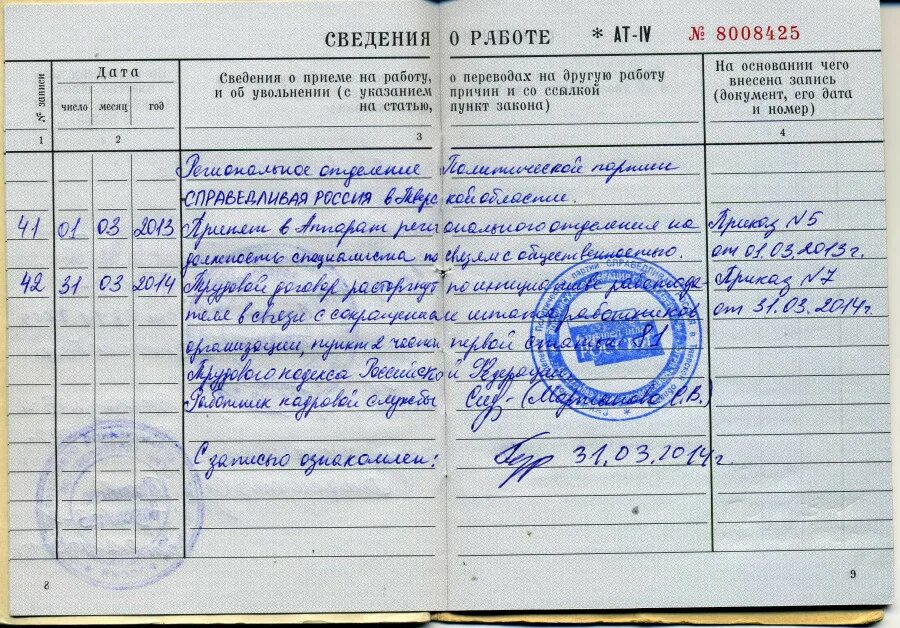 СВЕДЕНИЯ О РАБОТЕ * АТ-IV № 8008425
№ записи
Дата
число месяц год
Сведения о приеме на работу, о переводах на другую работу
и об увольнении (с указанием причин и со ссылкой
на статью, пункт закона)
На основании чего
внесена запись
(документ, его дата
и номер)
1 2 3 4
Региональное отделение Политической партии
СПРАВЕДЛИВАЯ РОССИЯ в Тверской области.
41 01 03 2013 Принят в Аппарат регионального отделения на Приказ №5
должность специалиста по связям с общественностью. от 01.03.2013г.
42 31 03 2014 Трудовой договор расторгнут по инициативе работода Приказ №7
теля в связи с сокращением штата работников от 31.03.2014г.
организации, пункт 2 части первой статьи 81
Трудового кодекса Российской Федерации
Работник кадровой службы (Мартынова С.В.)
С записью ознакомлен: 31.03.2014г.
8 9